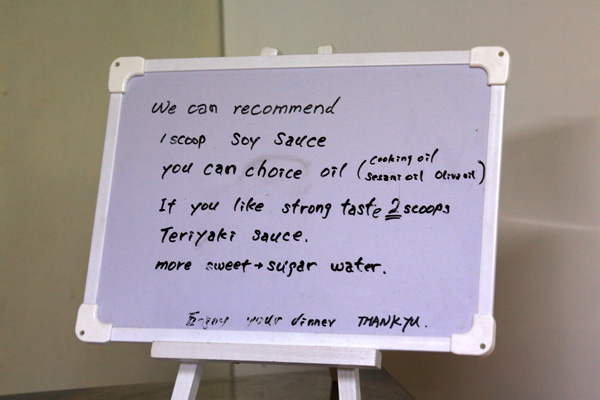 We can recommend
1 scoop Soy Sauce
you can choice oil (Cooking oil
Sesami oil Olive oil)
If you like strong taste 2 scoops
Teriyaki sauce.
more sweet → sugar water.
Enjoy your dinner THANKYU.